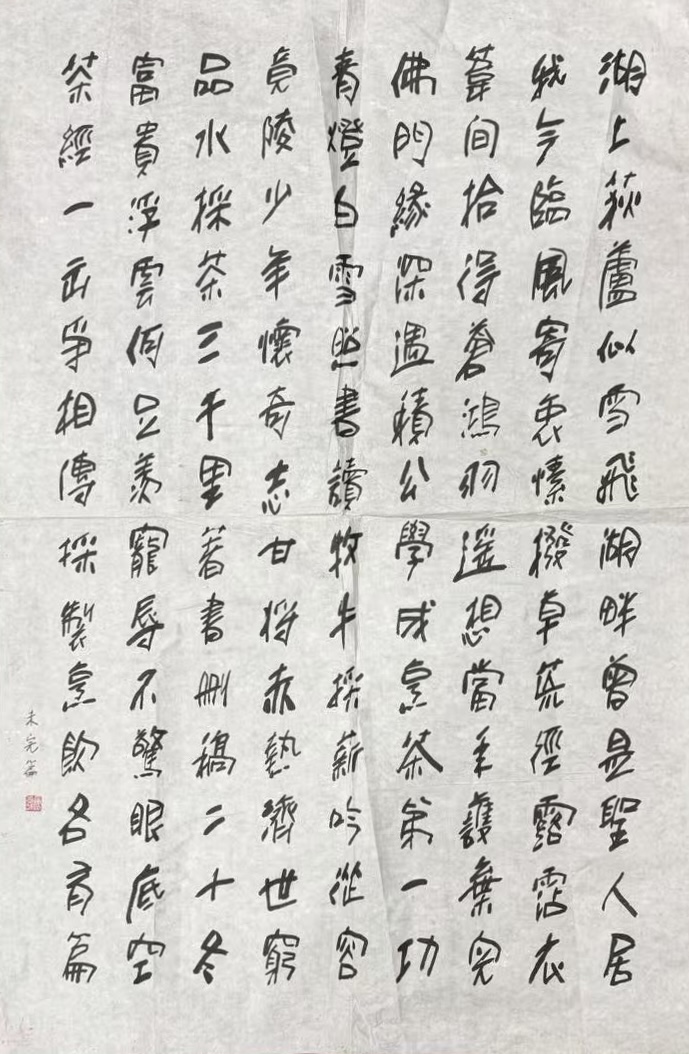 湖上荻蘆似雪飛湖畔曾是聖人居
我今臨風寄衷愫撥草荒徑露霑衣
葦間拾得蒼鴻羽遥想當年護棄兒
佛門緣深遇積公學成烹茶第一功
青燈白雪照書讀牧牛採薪吟從容
竟陵少年懷奇志甘將赤熱濟世窮
品水採茶三千里著書刪稿二十冬
富貴浮雲何足羨寵辱不驚眼底空
茶經一出爭相傳採製烹飲各有篇
未完篇